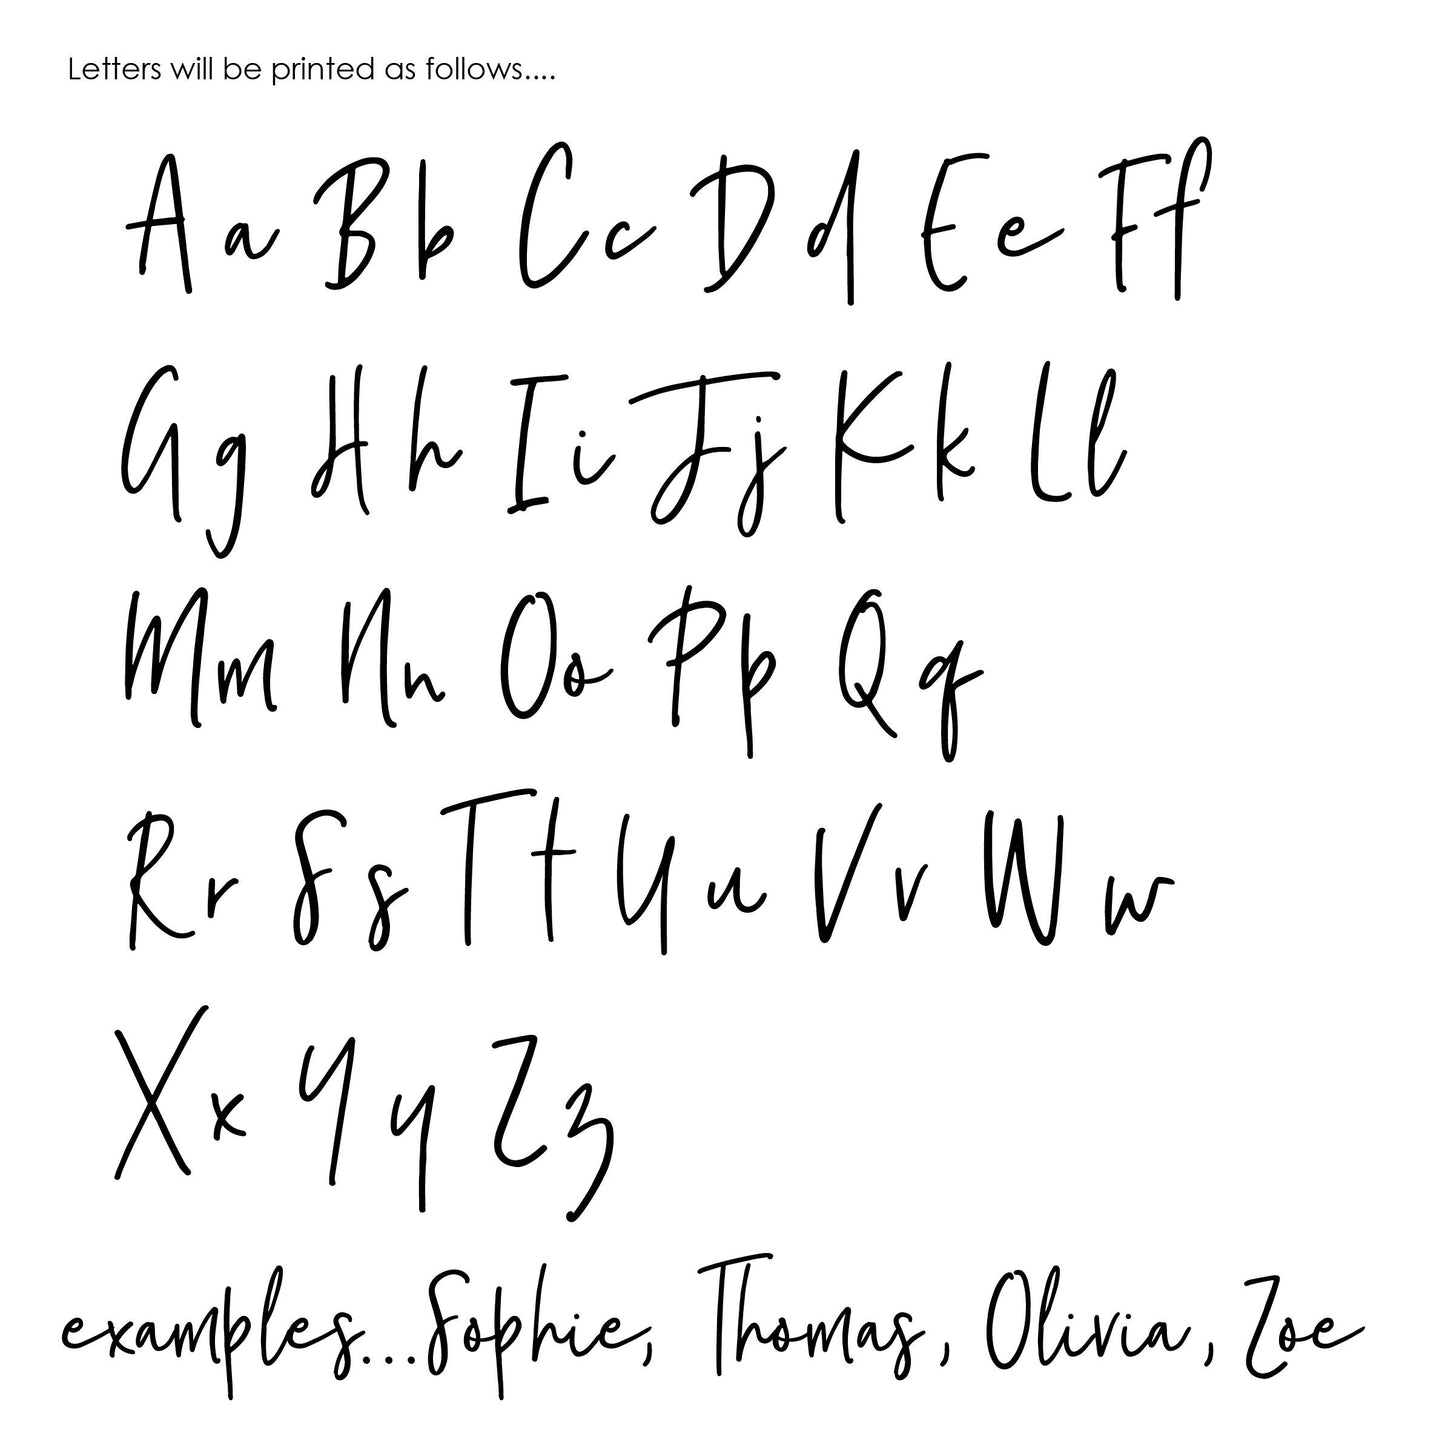 Letters will be printed as follows....
A a B b C c D d E e F f
G g H h I i J j K k L l
M m N n O o P p Q q
R r S s T t U u V v W w
X x Y y Z z
examples...Sophie, Thomas, Olivia, Zoe